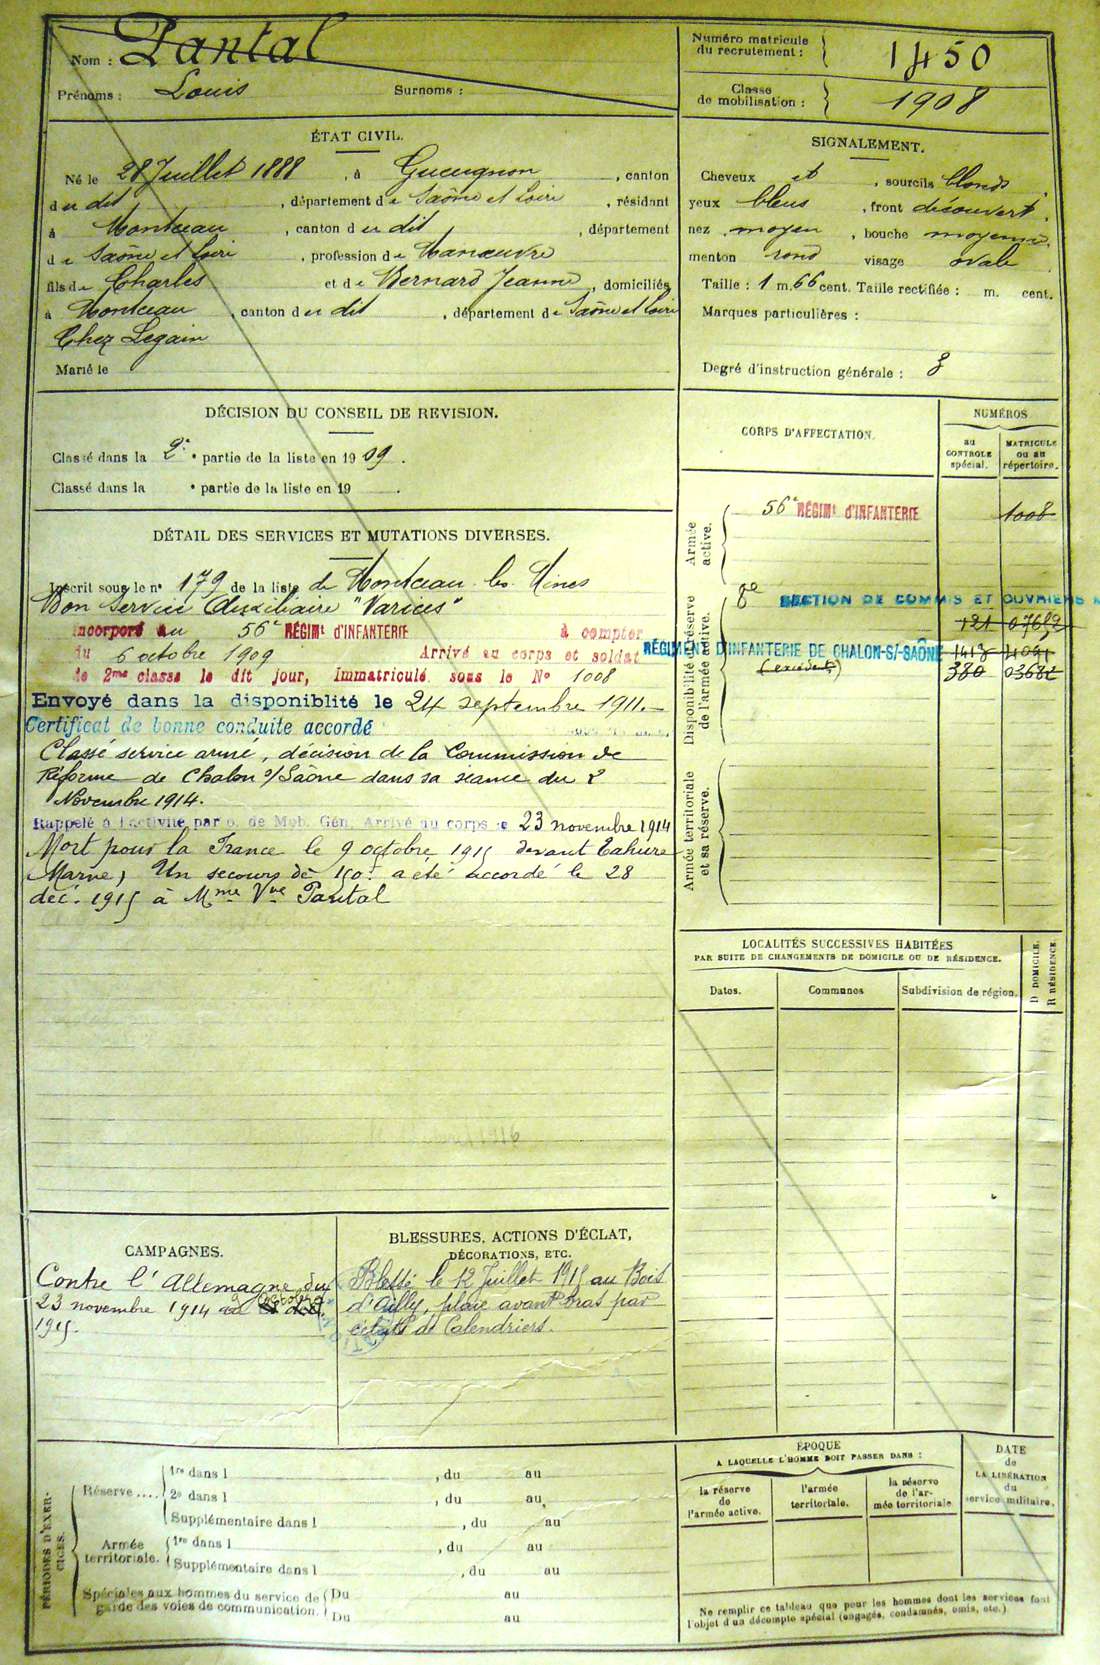 Nom : Pantal
Prénoms : Louis Surnoms :
Numéro matricule du recrutement : 1450
Classe de mobilisation : 1908
ÉTAT CIVIL.
Né le 28 Juillet 1888, à Gueugnon, canton
dudit, département de Saône et Loire, résidant
à Montceau, canton dudit, département
de Saône et Loire, profession de Manœuvre
fils de Charles et de Bernard Jeanne, domiciliés
à Montceau, canton dudit, département de Saône et Loire
Chez Legain
Marié le
SIGNALEMENT.
Cheveux et, sourcils blonds
yeux bleus, front découvert,
nez moyen, bouche moyenne,
menton rond visage ovale
Taille : 1 m. 66 cent. Taille rectifiée : m. cent.
Marques particulières :
Degré d'instruction générale : 3
DÉCISION DU CONSEIL DE REVISION.
Classé dans la 2e partie de la liste en 1909.
Classé dans la e partie de la liste en 19 .
DÉTAIL DES SERVICES ET MUTATIONS DIVERSES.
Inscrit sous le n° 179 de la liste de Montceau-les-Mines
Bon Service Auxiliaire "Varices"
Incorporé au 56e RÉGIMt D'INFANTERIE à compter
du 6 octobre 1909 Arrivé au corps et soldat
de 2me classe le dit jour, Immatriculé sous le N° 1008
Envoyé dans la disponiblité le 24 septembre 1911.-
Certificat de bonne conduite accordé
Classé service armé, décision de la Commission de
Réforme de Chalon s/Saône dans sa séance du 2
Novembre 1914.
Rappelé à l'activité par o. de Mob. Gén. Arrivé au corps le 23 novembre 1914
Mort pour la France le 9 octobre 1915 devant Tahure
Marne, Un secours de 150f a été accordé le 28
déc. 1915 à Mme Vve Pantal
CORPS D'AFFECTATION.
NUMÉROS
au CONTROLE spécial.
MATRICULE ou au répertoire.
Armée active.
56e RÉGIMt D'INFANTERIE 1008
Disponibilité et réserve de l'armée active.
8e SECTION DE COMMIS ET OUVRIERS
121
RÉGIMENT D'INFANTERIE DE CHALON-S/-SAÔNE
380
Armée territoriale et sa réserve.
LOCALITÉS SUCCESSIVES HABITÉES
PAR SUITE DE CHANGEMENTS DE DOMICILE OU DE RÉSIDENCE.
D DOMICILE.
R RÉSIDENCE.
Dates. Communes Subdivision de région.
CAMPAGNES.
Contre l'Allemagne, du
23 novembre 1914 au 9 octobre
1915.
BLESSURES, ACTIONS D'ÉCLAT,
DÉCORATIONS, ETC.
Blessé le 12 Juillet 1915 au Bois
d'Ailly, plaie avant bras par
éclats de Calendriers.
PÉRIODES D'EXERCICES.
Réserve .... 1re dans l , du au
2e dans l , du au
Supplémentaire dans l , du au
Armée territoriale. 1re dans l , du au
Supplémentaire dans l , du au
Spéciales aux hommes du service de garde des voies de communication. Du au
Du au
ÉPOQUE
A LAQUELLE L'HOMME DOIT PASSER DANS :
la réserve de l'armée active.
l'armée territoriale.
la réserve de l'armée territoriale
DATE de LA LIBÉRATION du service militaire.
Ne remplir ce tableau que pour les hommes dont les services font
l'objet d'un décompte spécial (engagés, condamnés, omis, etc.)